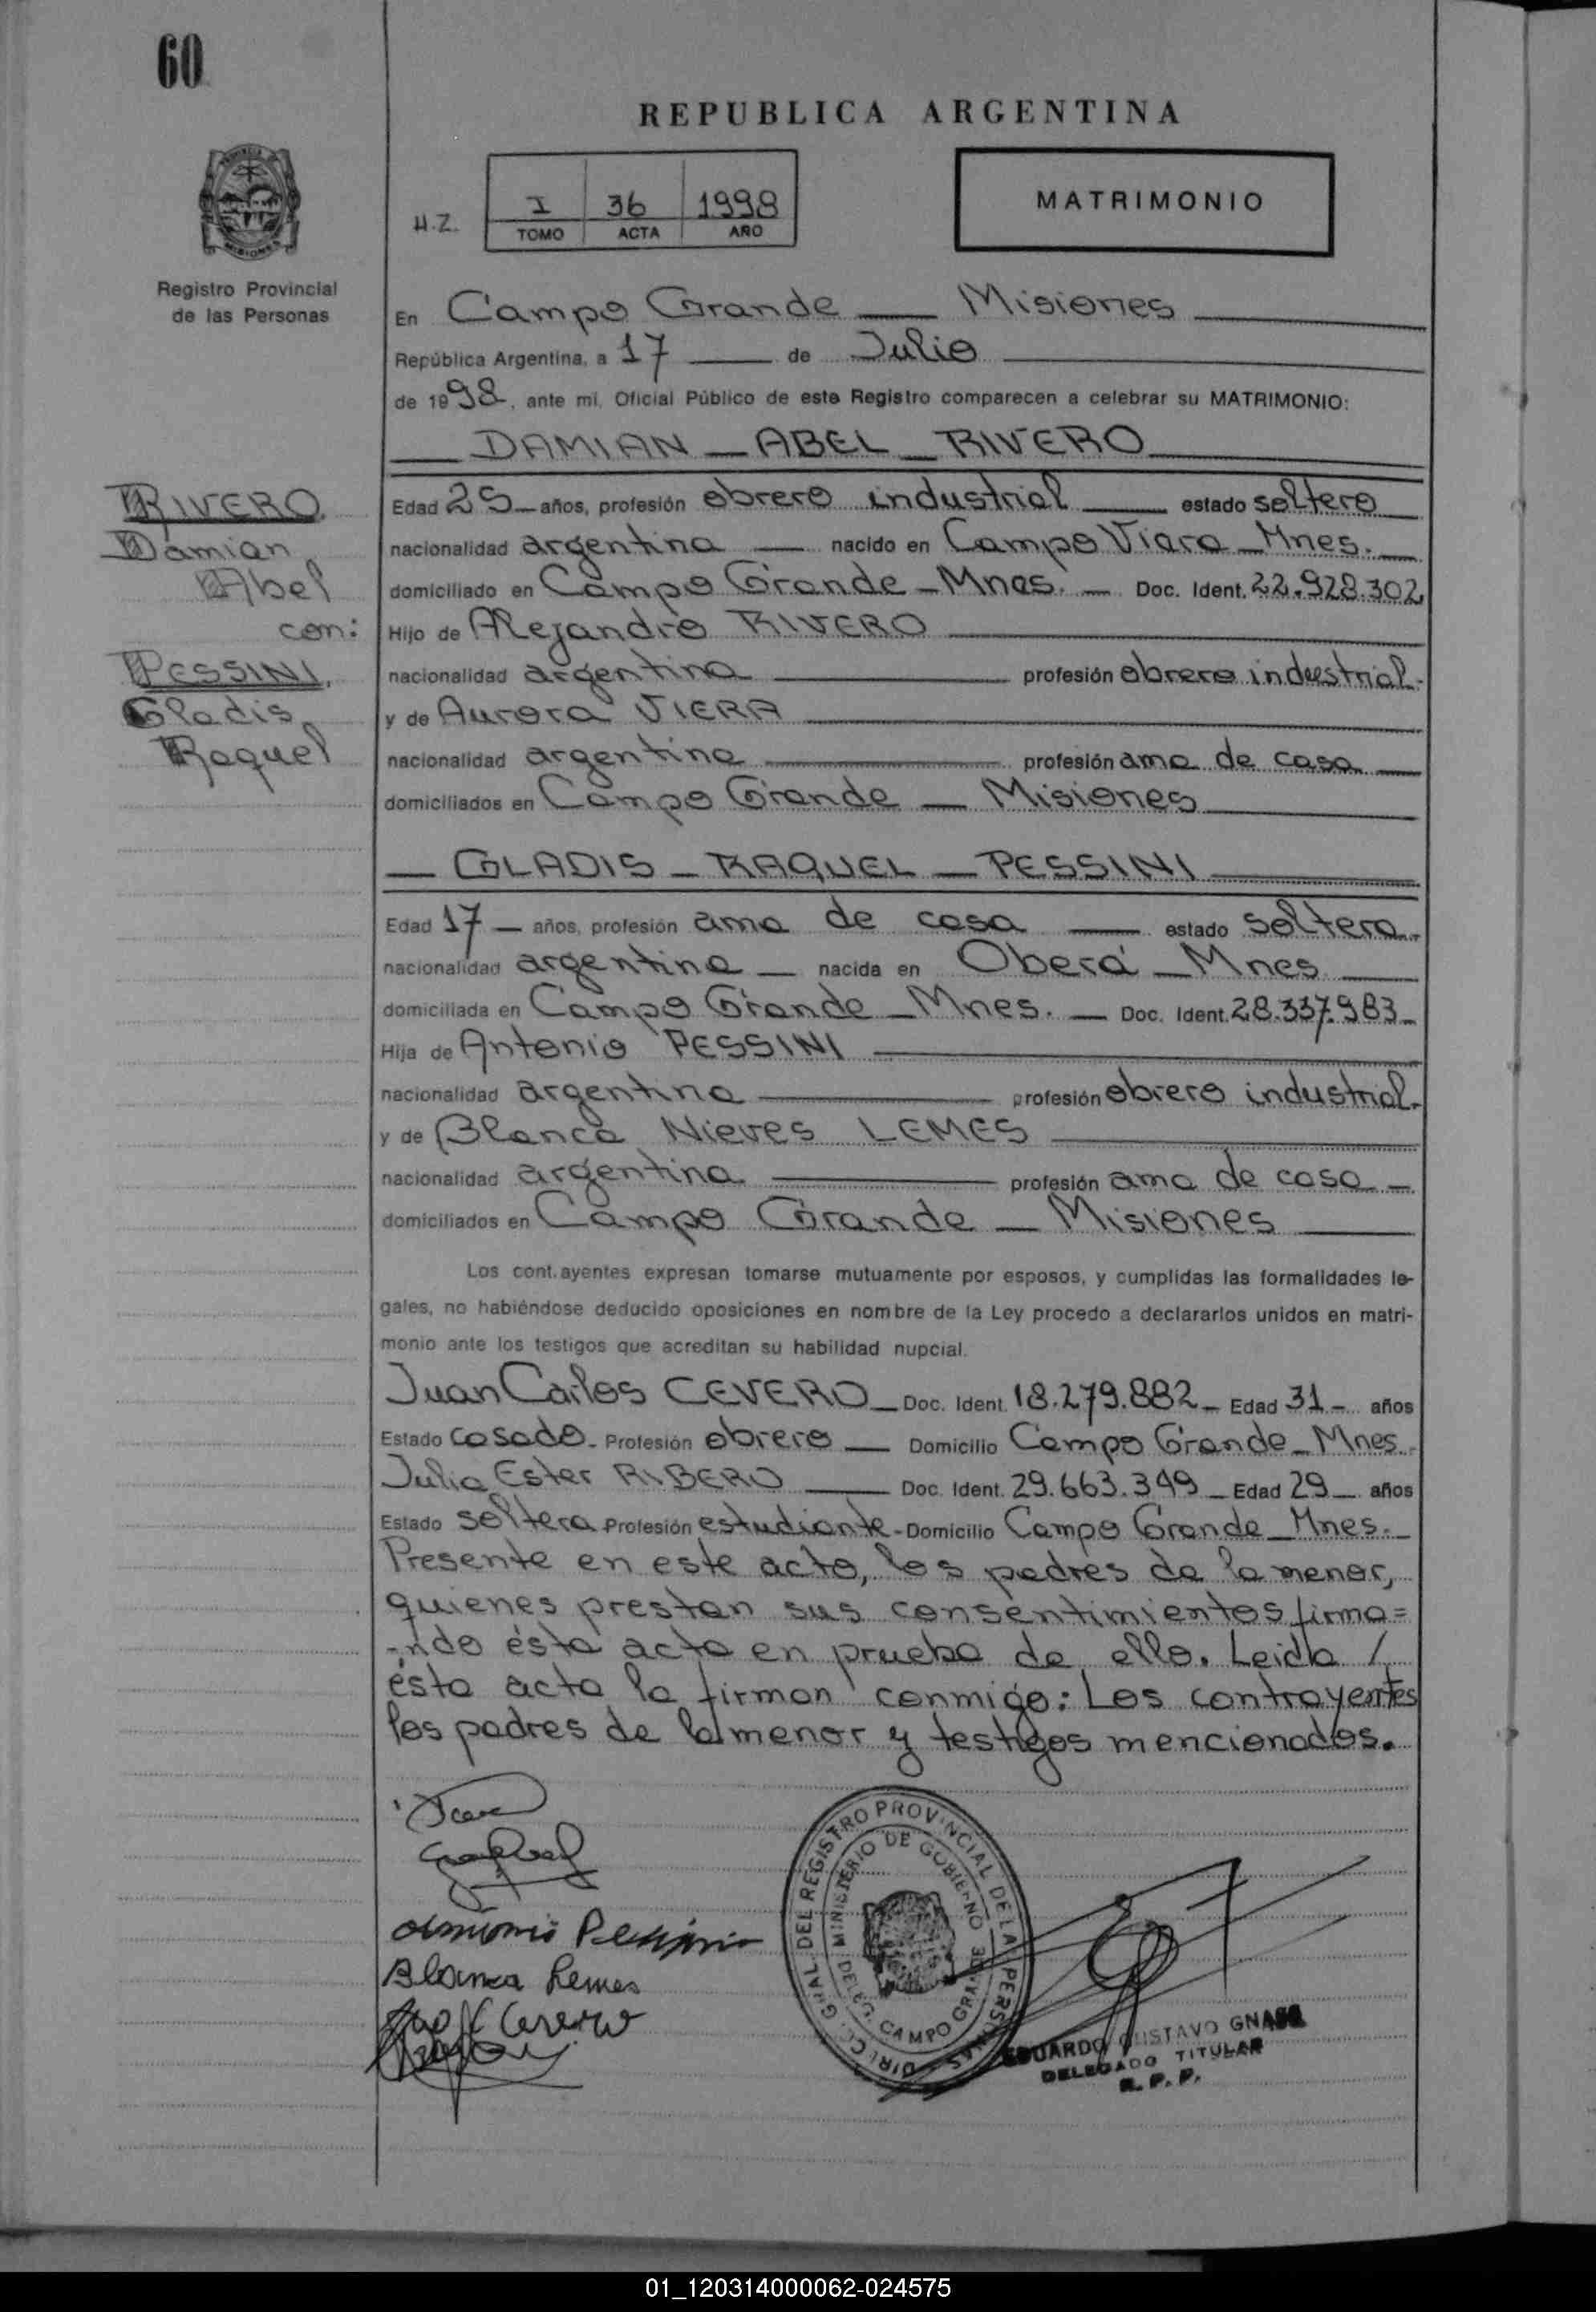 60
REPUBLICA ARGENTINA
H.Z.
I 36 1998
TOMO ACTA AÑO
MATRIMONIO
Registro Provincial
de las Personas
En Campo Grande — Misiones
República Argentina, a 17 — de Julio
de 1998, ante mi, Oficial Público de este Registro comparecen a celebrar su MATRIMONIO:
— DAMIAN — ABEL — RIVERO
RIVERO
Damian
Abel
con:
PESSINI,
Gladis
Raquel
Edad 25 — años, profesión obrero industrial — estado soltero
nacionalidad argentina — nacido en Campo Viera — Mnes. —
domiciliado en Campo Grande — Mnes. — Doc. Ident. 22.928.302
Hijo de Alejandro RIVERO
nacionalidad argentina — profesión obrero industrial.
y de Aurora VIERA
nacionalidad argentina — profesión ama de casa —
domiciliados en Campo Grande — Misiones
— GLADIS — RAQUEL — PESSINI
Edad 17 — años, profesión ama de casa — estado soltera.
nacionalidad argentina — nacida en Oberá — Mnes
domiciliada en Campo Grande — Mnes. — Doc. Ident. 28.337.983 —
Hija de Antonio PESSINI
nacionalidad argentina — profesión obrero industrial.
y de Blanca Nieves LEMES
nacionalidad argentina. — profesión ama de casa —
domiciliados en Campo Grande — Misiones
Los cont.ayentes expresan tomarse mutuamente por esposos, y cumplidas las formalidades le-
gales, no habiéndose deducido oposiciones en nombre de la Ley procedo a declararlos unidos en matri-
monio ante los testigos que acreditan su habilidad nupcial.
Juan Carlos CEVERO — Doc. Ident. 18.279.882 — Edad 31 — años
Estado casado — Profesión obrero — Domicilio Campo Grande — Mnes.
Julia Ester RIBERO — Doc. Ident. 29.663.349 — Edad 29 — años
Estado soltera Profesión estudiante — Domicilio Campo Grande — Mnes. —
Presente en este acto, los padres de la menor,
quienes prestan sus consentimientos firma=
-ndo ésta acta en prueba de ello. Leida /
ésta acta la firman conmigo: Los contrayentes
los padres de la menor y testigos mencionados.
Antonio Pessini
Blanca Lemes
Cevero
DIRECC. GRAL. DEL REGISTRO PROVINCIAL DE LA PERSONAS
MINISTERIO DE GOBIERNO
DELEG. CAMPO GRANDE
EDUARDO GUSTAVO GNASS
DELEGADO TITULAR
R. P. P.
01_120314000062-024575